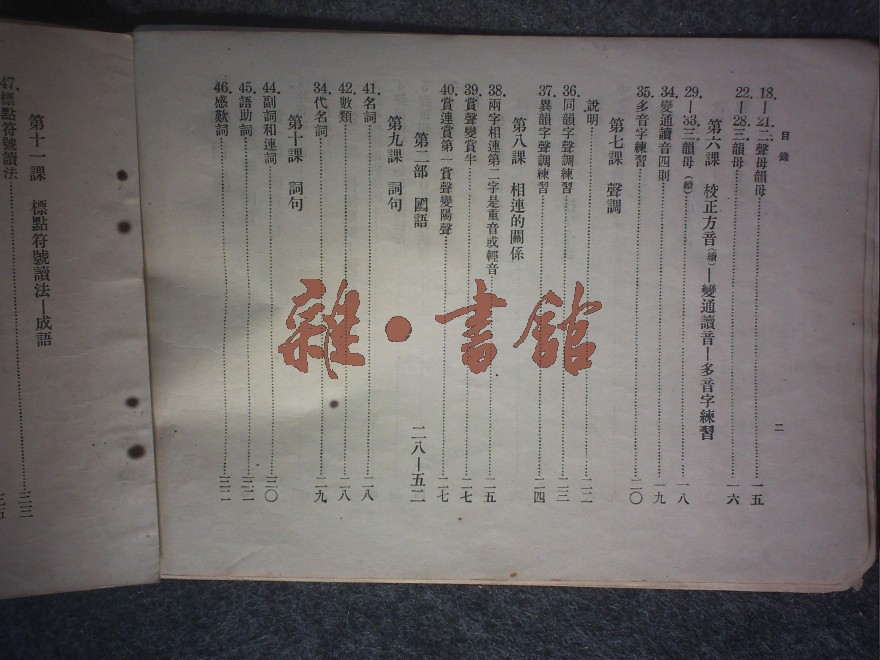 目錄
二
18.—21.二聲母韻母……一五
22.—28.三韻母……一六
第六課 校正方音(續)—變通讀音—多音字練習
29.—33.三韻母(續)……一八
34.變通讀音四則……一九
35.多音字練習……二〇
第七課 聲調
說明……二二
36.同韻字聲調練習……二三
37.異韻字聲調練習……二四
第八課 相連的關係
38.兩字相連第二字是重音或輕音……二五
39.賞聲變賞半……二七
40.賞連賞第一賞聲變陽聲……二七
第二部 國語 二八—五二
第九課 詞句
41.名詞……二八
42.數類……二八
34.代名詞……二九
第十課 詞句
44.副詞和連詞……三〇
45.語助詞……三二
46.感歎詞……三二
第十一課 標點符號讀法—成語
47.標點符號讀法……三三
雜·書館